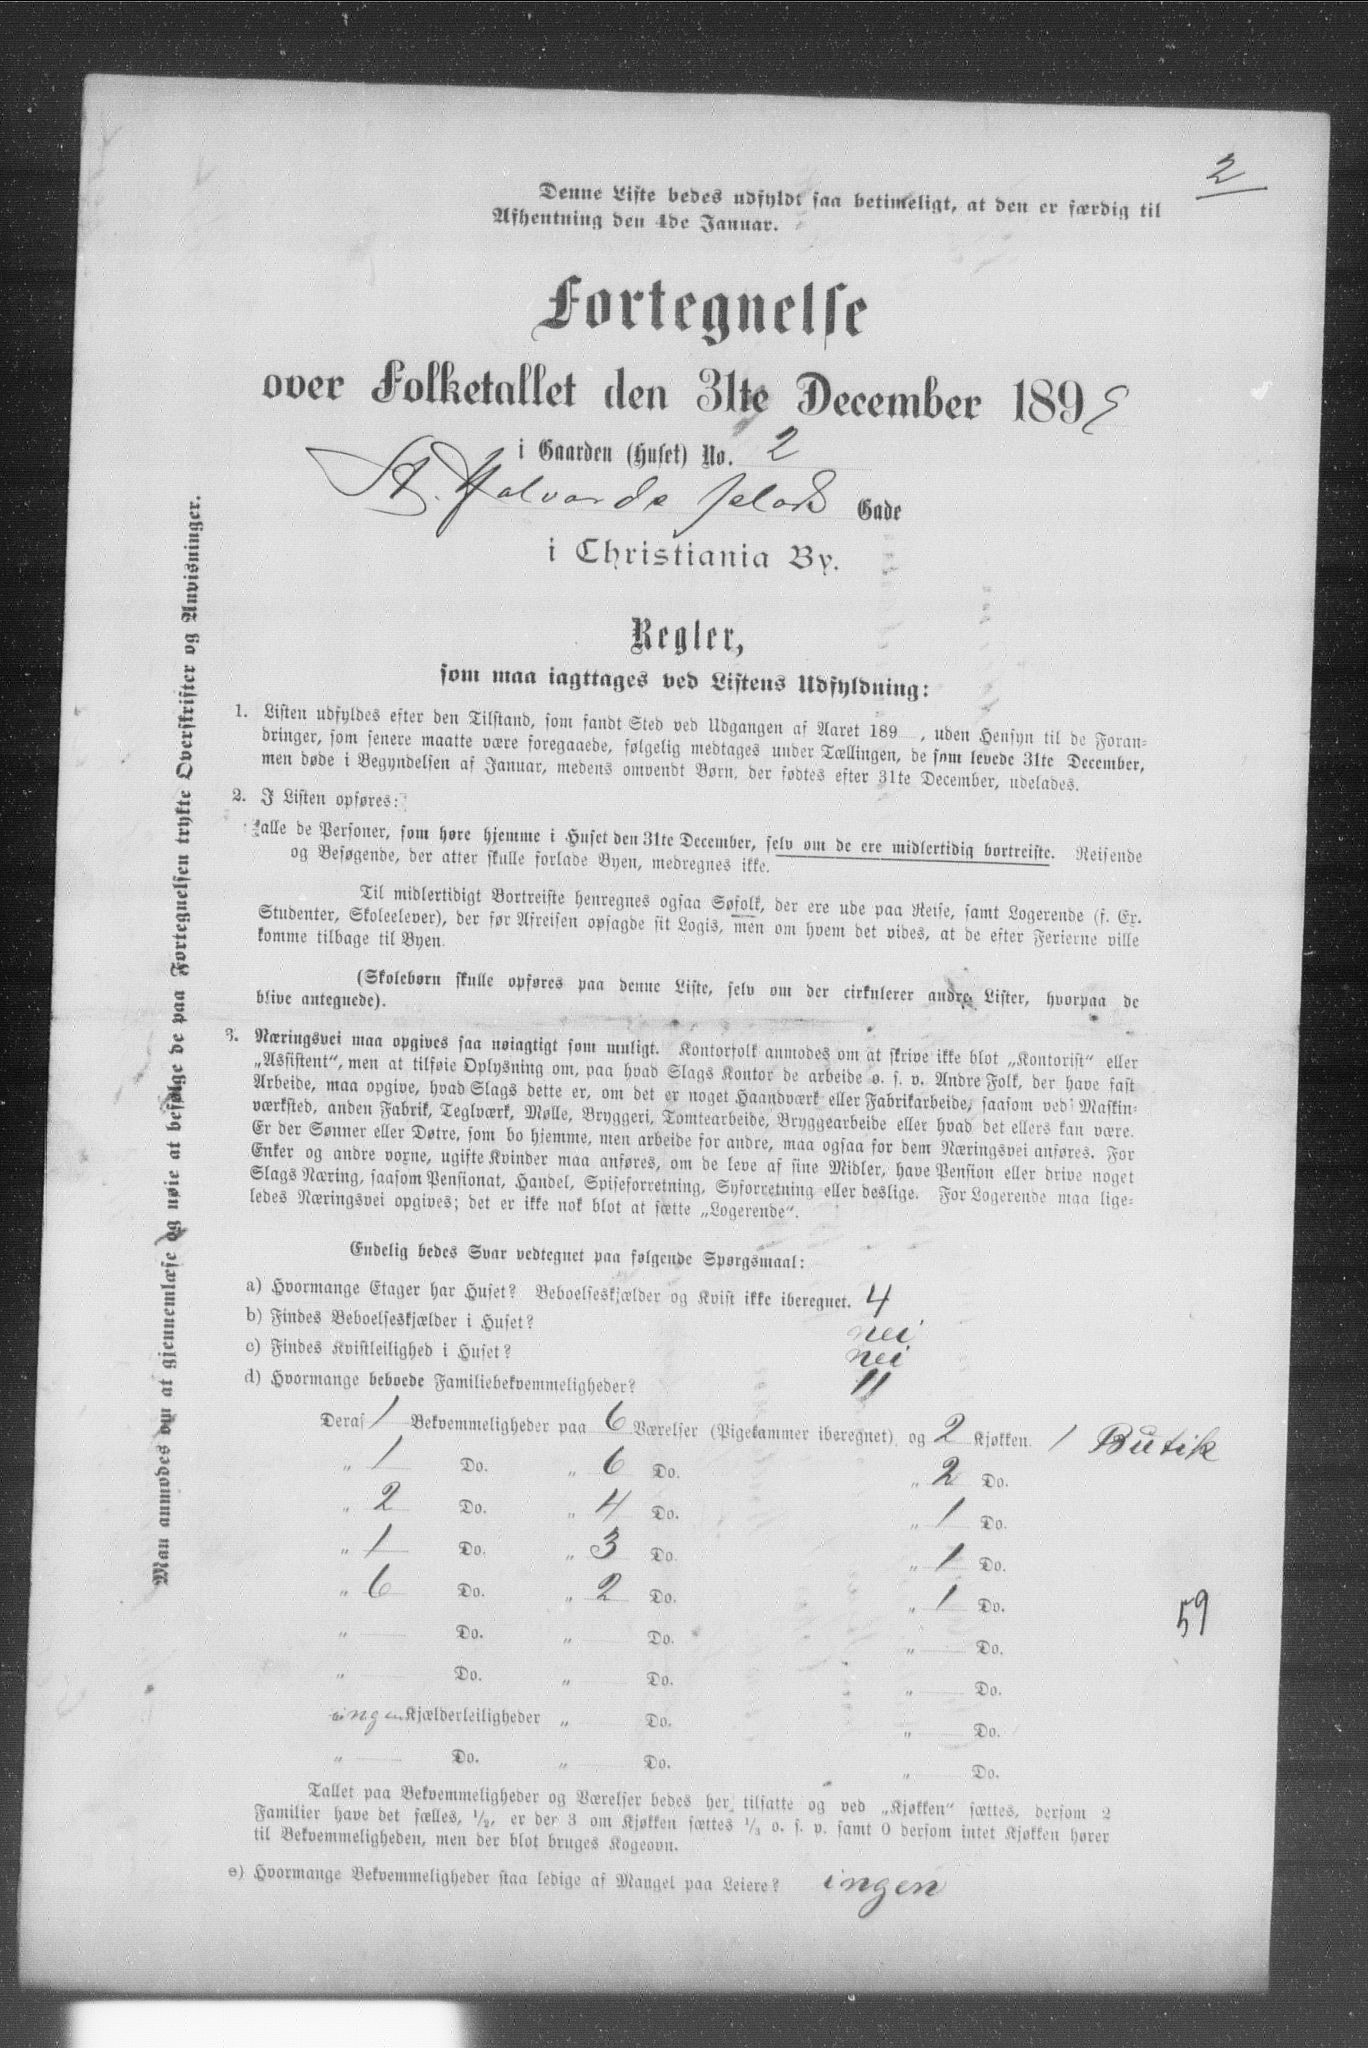 2
Denne Liste bedes udfyldt saa betimeligt, at den er færdig til
Afhentning den 4de Januar.
Fortegnelse
over Folketallet den 31te December 189
i Gaarden (Huset) No. 2
St. Halvards Gade
i Christiania By.
Regler,
som maa iagttages ved Listens Udfyldning:
1. Listen udfyldes efter den Tilstand, som fandt Sted ved Udgangen af Aaret 189 , uden Hensyn til de Foran-
dringer, som senere maatte være foregaaede, følgelig medtages under Tællingen, de som levede 31te December,
men døde i Begyndelsen af Januar, medens omvendt Børn, der fødtes efter 31te December, udelades.
2. I Listen opføres:
alle de Personer, som høre hjemme i Huset den 31te December, selv om de ere midlertidig bortreiste. Reisende
og Besøgende, der atter skulle forlade Byen, medregnes ikke.
Til midlertidigt Bortreiste henregnes ogsaa Søfolk, der ere ude paa Reise, samt Logerende (f. Ex.
Studenter, Skoleelever), der før Afreisen opsagde sit Logis, men om hvem det vides, at de efter Ferierne ville
komme tilbage til Byen.
(Skolebørn skulle opføres paa denne Liste, selv om der cirkulerer andre Lister, hvorpaa de
blive antegnede).
3. Næringsvei maa opgives saa nøiagtigt som muligt. Kontorfolk anmodes om at skrive ikke blot „Kontorist“ eller
„Assistent“, men at tilføie Oplysning om, paa hvad Slags Kontor de arbeide o. s. v. Andre Folk, der have fast
Arbeide, maa opgive, hvad Slags dette er, om det er noget Haandværk eller Fabrikarbeide, saasom ved Maskin-
værksted, anden Fabrik, Teglværk, Mølle, Bryggeri, Tomtearbeide, Bryggearbeide eller hvad det ellers kan være.
Er der Sønner eller Døtre, som bo hjemme, men arbeide for andre, maa ogsaa for dem Næringsvei anføres. For
Enker og andre voxne, ugifte Kvinder maa anføres, om de leve af sine Midler, have Pension eller drive noget
Slags Næring, saasom Pensionat, Handel, Spiseforretning, Syforretning eller deslige. For Logerende maa lige-
ledes Næringsvei opgives; det er ikke nok blot at sætte „Logerende“.
Endelig bedes Svar vedtegnet paa følgende Spørgsmaal:
a) Hvormange Etager har Huset? Beboelseskjælder og Kvist ikke iberegnet. 4
b) Findes Beboelseskjælder i Huset? nei
c) Findes Kvistleilighed i Huset? nei
d) Hvormange beboede Familiebekvemmeligheder? 11
Deraf 1 Bekvemmeligheder paa 6 Værelser (Pigekammer iberegnet) og 2 Kjøkken. 1 Butik
„ 1 Do. „ 6 Do. „ 2 Do.
„ 2 Do. „ 4 Do. „ 1 Do.
„ 1 Do. „ 3 Do. „ 1 Do.
„ 6 Do. „ 2 Do. „ 1 Do.
59
„ Do. „ Do. „ Do.
„ Do. „ Do. „ Do.
ingen Kjælderleiligheder „ Do. „ Do.
„ Do. „ Do. „ Do.
Tallet paa Bekvemmeligheder og Værelser bedes her tilsatte og ved „Kjøkken“ sættes, dersom 2
Familier have det fælles, 1/2, er der 3 om Kjøkken sættes 1/3 o. s. v. samt 0 dersom intet Kjøkken hører
til Bekvemmeligheden, men der blot bruges Kogeovn.
e) Hvormange Bekvemmeligheder staa ledige af Mangel paa Leiere? ingen
Man anmodes om at gjennemlæse og nøie at besølge de paa Fortegnelsen trykte Overskrifter og Anvisninger.